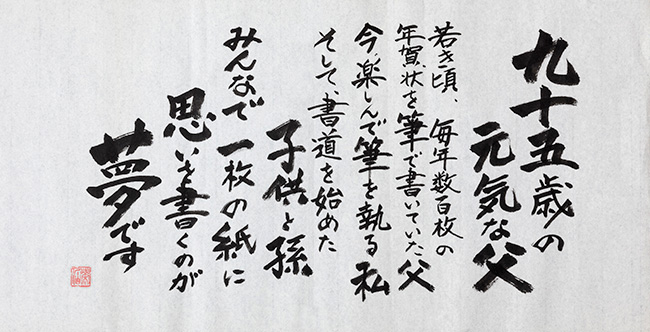 九十五歳の
元気な父
若き頃、毎年数百枚の
年賀、状を筆で書いていた父
今、楽しんで筆を執る私
そして、書道を始めた
子供と孫
みんなで一枚の紙に
思いを書くのが
夢です